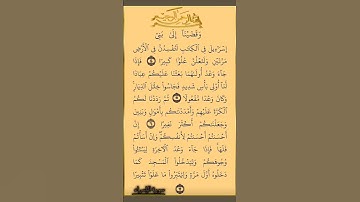 وَقَضَيْنَآ إِلَىٰ بَنِىٓ
إِسْرَٰٓءِيلَ فِى ٱلْكِتَٰبِ لَتُفْسِدُنَّ فِى ٱلْأَرْضِ
مَرَّتَيْنِ وَلَتَعْلُنَّ عُلُوًّا كَبِيرًا ۝ فَإِذَا
جَآءَ وَعْدُ أُولَىٰهُمَا بَعَثْنَا عَلَيْكُمْ عِبَادًا
لَّنَآ أُو۟لِى بَأْسٍ شَدِيدٍ فَجَاسُوا۟ خِلَٰلَ ٱلدِّيَارِ
وَكَانَ وَعْدًا مَّفْعُولًا ۝ ثُمَّ رَدَدْنَا لَكُمُ
ٱلْكَرَّةَ عَلَيْهِمْ وَأَمْدَدْنَٰكُم بِأَمْوَٰلٍ وَبَنِينَ
وَجَعَلْنَٰكُمْ أَكْثَرَ نَفِيرًا ۝ إِنْ
أَحْسَنتُمْ أَحْسَنتُمْ لِأَنفُسِكُمْ وَإِنْ أَسَأْتُمْ
فَلَهَا فَإِذَا جَآءَ وَعْدُ ٱلْءَاخِرَةِ لِيَسُۥٓـُٔوا۟
وُجُوهَكُمْ وَلِيَدْخُلُوا۟ ٱلْمَسْجِدَ كَمَا
دَخَلُوهُ أَوَّلَ مَرَّةٍ وَلِيُتَبِّرُوا۟ مَا عَلَوْا۟ تَتْبِيرًا